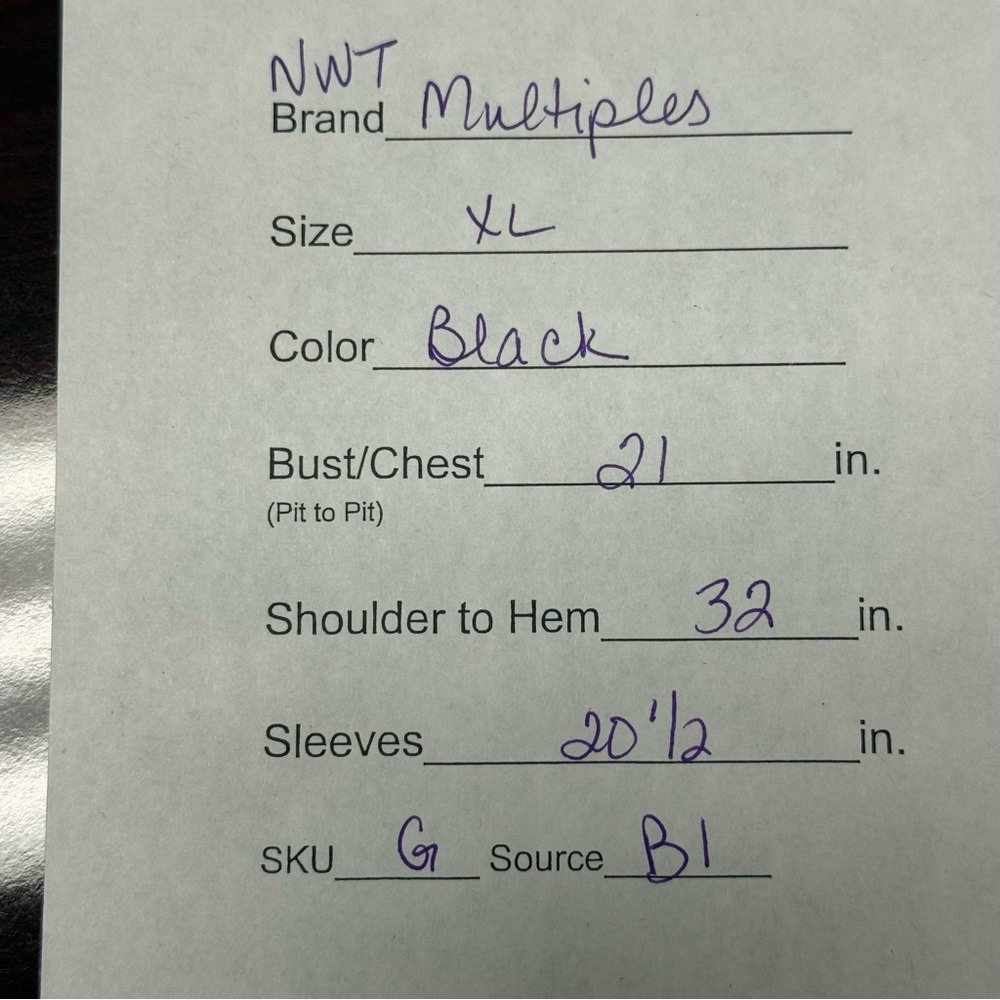 NWT
Brand Multiples
Size XL
Color Black
Bust/Chest 21 in.
(Pit to Pit)
Shoulder to Hem 32 in.
Sleeves 20 1/2 in.
SKU G Source B1